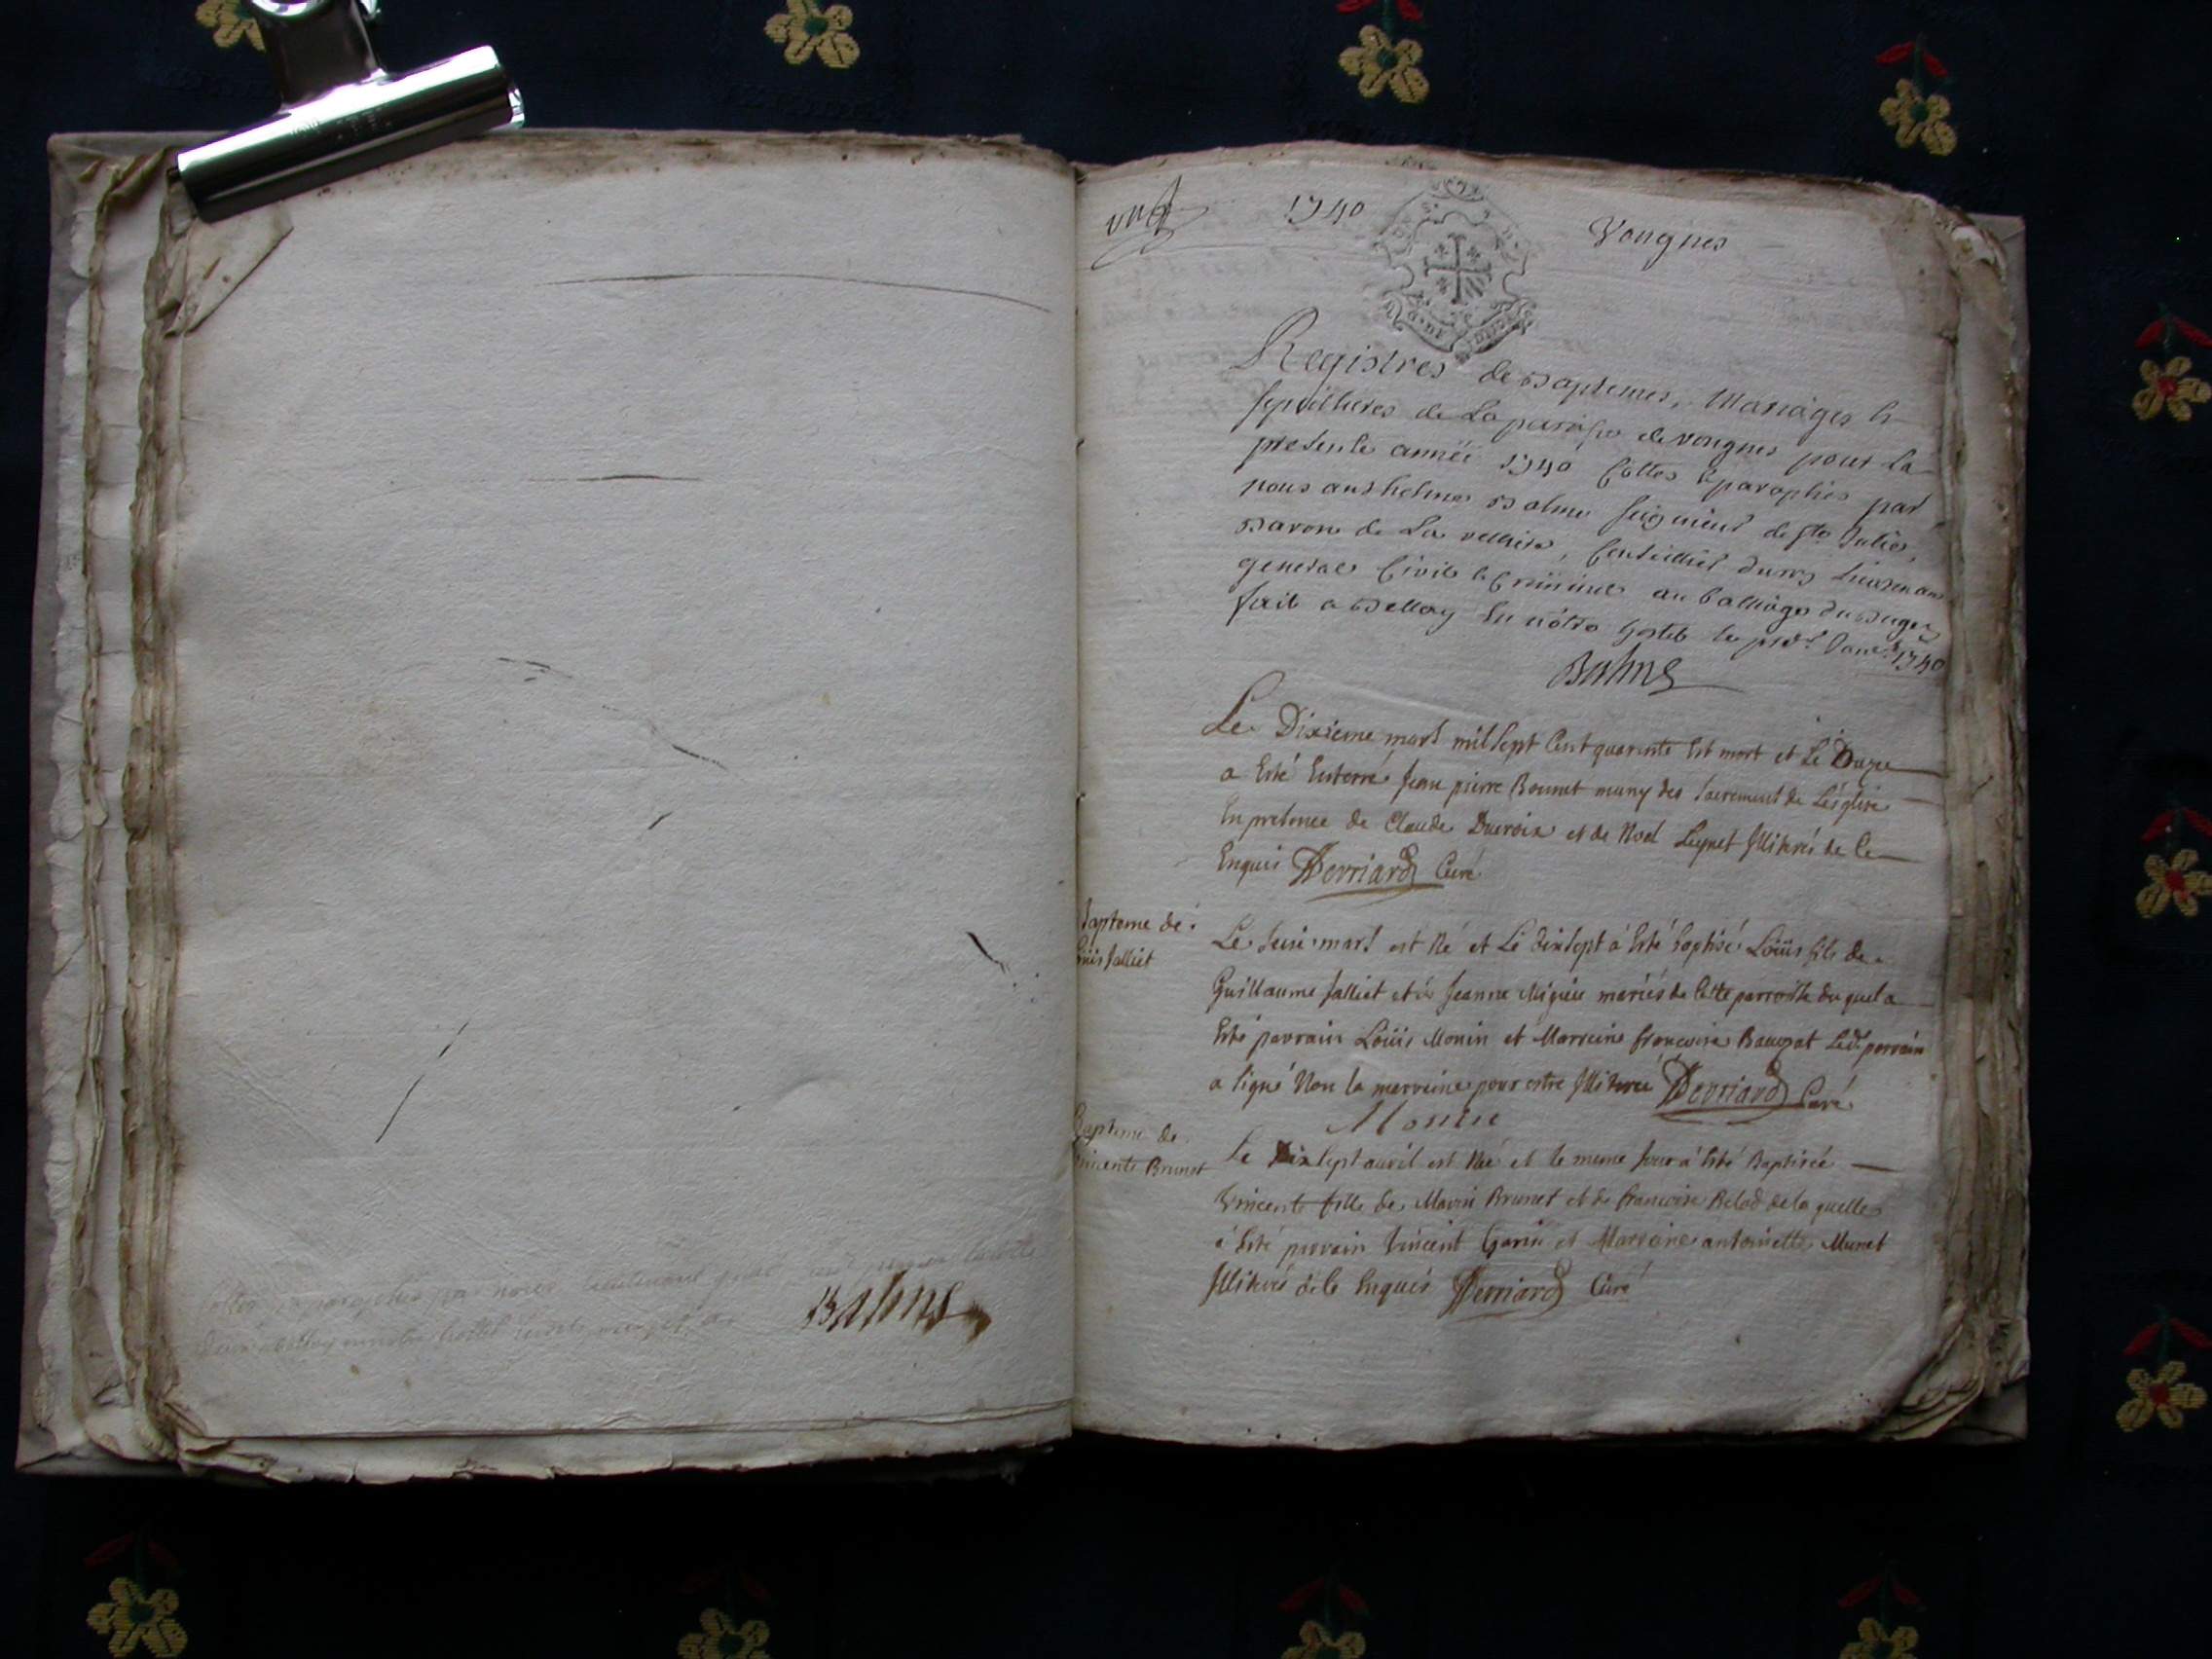 Balme
1740
Vongnes
Registres de Baptemes, Mariages et
sepultures de La paroisse de vongnes pour la
presente année 1740 Cottes et paraphes par
nous anthelme Balme seigneur de ste Julie,
Baron de La velliere, Conseiller du roy Lieutenant
general Civil et Criminel au balliage du Bugey
fait a Belley En nôtre hostel le pr. Janv. 1740
Balme
Le Dixieme mars mil sept Cent quarante Est mort et Le Onze
a Esté Enterré Jean pierre Bounet muny des sacrement de L'eglise
En presence de Claude Ducroix et de Noel Illiterés de Ce
Enquis Derriard Curé
Bapteme de
Loüis Jalliet
Le seise mars est Né et Le dixsept à Esté baptisé Loüis fils de
Guillaume Jalliet et de Jeanne Migieu mariés de Cette parroisse du quel a
Esté parrain Loüis Monin et Marreine francoise Led. parrain
a signé Non la marreine pour estre Illiterée Derriard Curé
Monin
Bapteme de
Vincente Brunet
Le Dixsept avril est Née et le meme Jour à Esté Baptisée
Vincente fille de Marin Brunet et de francoise Belod de la quelle
à Esté parrain Vincent Garin et Marreine antoinette Munet
Illiterés de Ce Enquis Derriard Curé